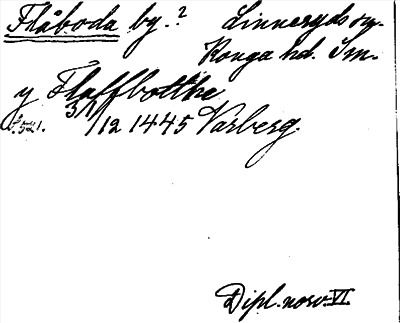 Flåboda by.? Linneryds sn.
Konga hd. Sm.
y Flaffbotthe
s. 521. 31/12 1445 Varberg.
Dipl. norv. VI.